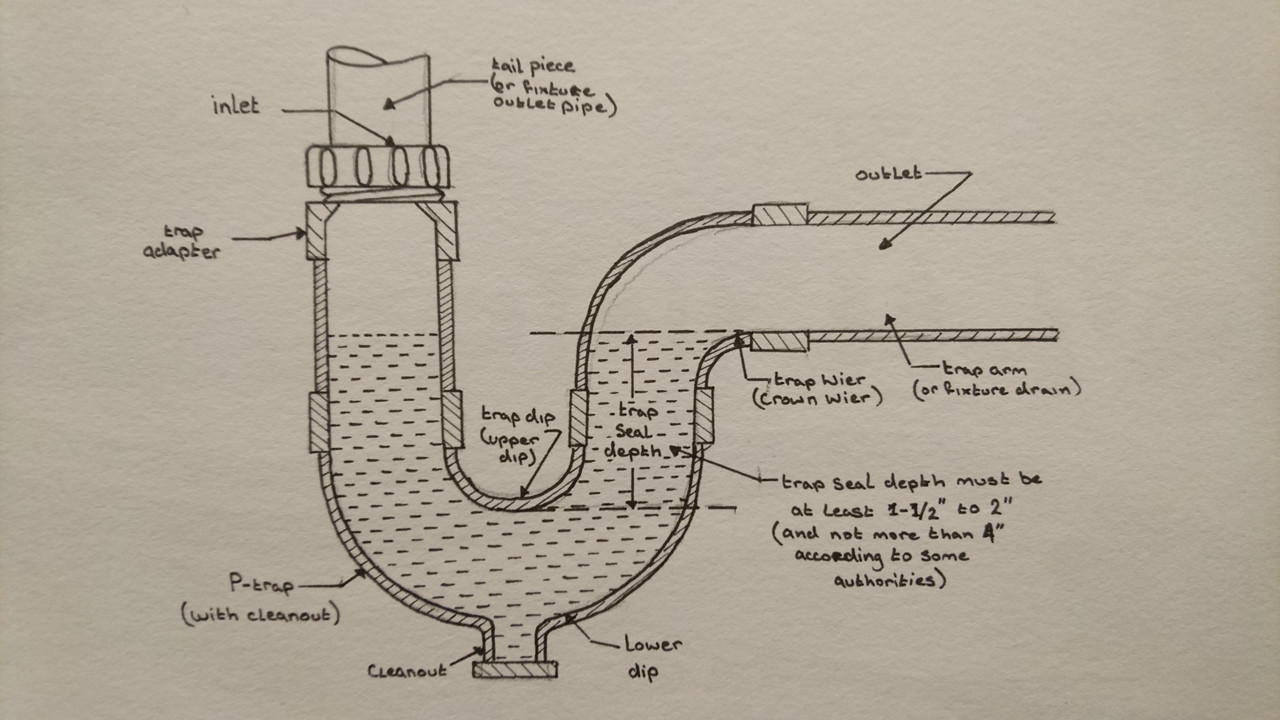 tail piece
(or fixture
outlet pipe)
inlet
outlet
trap
adapter
trap arm
(or fixture drain)
trap wier
(crown wier)
trap dip
(upper
dip)
trap
seal
depth
trap seal depth must be
at least 1-1/2" to 2"
(and not more than 4"
according to some
authorities)
P-trap
(with cleanout)
Cleanout
Lower
dip